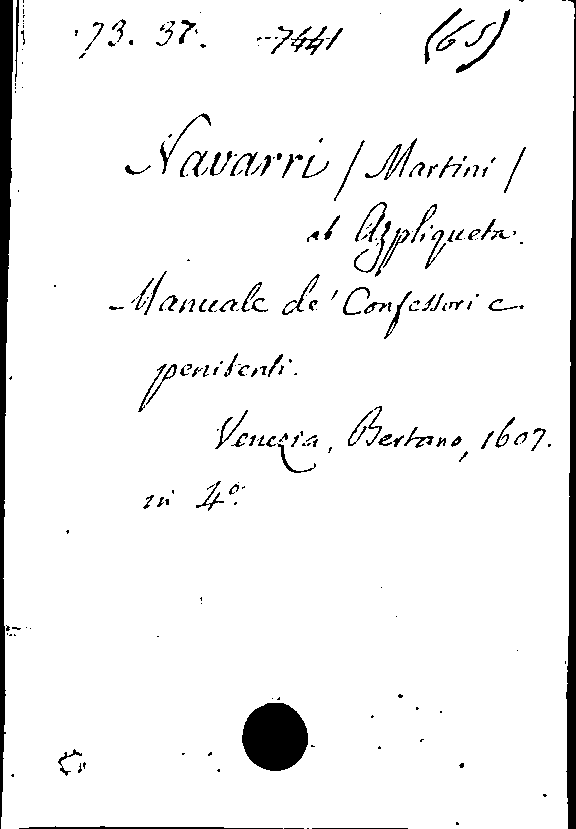 73. 37. 7441 (65)
Navarri / Martini /
ab Azpliqueta.
Manuale de' Confessori e
penitenti.
Venezia, Bertano, 1607.
in 4º.